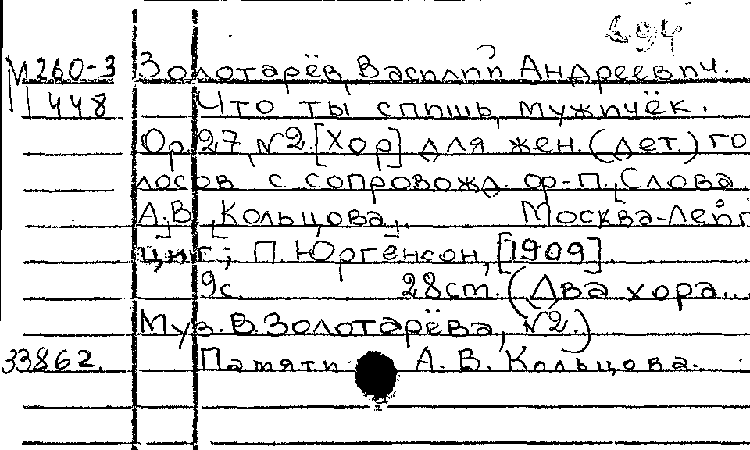 694
М260-3 Золотарёв, Василий Андреевич.
М448 Что ты спишь, мужичёк.
Op. 27, N2. [Хор] для жен. (дет.) го
лосов с сопровожд. ф-п., Слова
А.В. [Кольцова]. Москва-Лейп
циг; П. Юргенсон, [1909].
9с. 28ст. (Два хора...
Муз. В. Золотарёва, N2.)
33862. Памяти А. В. Кольцова.